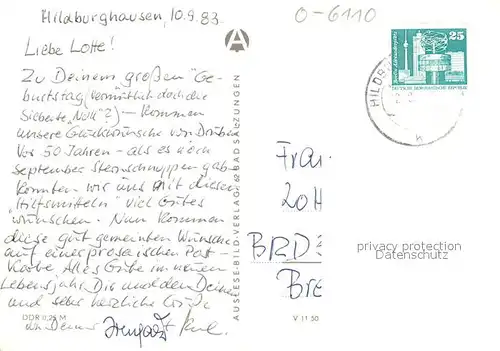 Hildburghausen, 10.9.83
O-6110
Liebe Lotte!
Zu Deinem großen "Ge-
burtstag (vermutlich doch die
Siebente "Null"?) – kommen
unsere Glückwünsche von Drüben
Vor 50 Jahren – als es noch
September Sternschnuppen gab –
konnten wir uns mit diesen
"Hilfsmitteln" viel Gutes
wünschen. Nun kommen
diese gut gemeinten Wünsche
auf einer prosaischen Post-
Karte. Alles Gute im neuen
Lebensjahr Dir und den Deinen
und sehr herzliche Grüße
von Deiner
DDR 0,25 M
AUSLESE-BILD-VERLAG · 62 BAD SALZUNGEN
25
DEUTSCHE DEMOKRATISCHE REPUBLIK
HILDB
Frau
Lott
BRD
Bre
V 11 50
privacy protection
Datenschutz